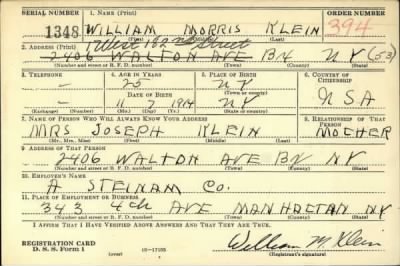 SERIAL NUMBER
1. NAME (Print)
ORDER NUMBER
1348 WILLIAM MORRIS KLEIN 394
(First) (Middle) (Last)
2. ADDRESS (Print)
West 182nd Street
2406 WALTON AVE BX NY (53)
(Number and street or R. F. D. number) (Town) (County) (State)
3. TELEPHONE
4. AGE IN YEARS
5. PLACE OF BIRTH
6. COUNTRY OF CITIZENSHIP
— 25 NY
DATE OF BIRTH (Town or county)
— 11 7 1914 NY USA
(Exchange) (Number) (Mo.) (Day) (Yr.) (State or country)
7. NAME OF PERSON WHO WILL ALWAYS KNOW YOUR ADDRESS
8. RELATIONSHIP OF THAT PERSON
MRS JOSEPH KLEIN MOTHER
(Mr., Mrs., Miss) (First) (Middle) (Last)
9. ADDRESS OF THAT PERSON
2406 WALTON AVE BX NY
(Number and street or R. F. D. number) (Town) (County) (State)
10. EMPLOYER'S NAME
A STEINAM CO.
11. PLACE OF EMPLOYMENT OR BUSINESS
343 4th AVE MANHATTAN NY
(Number and street or R. F. D. number) (Town) (County) (State)
I AFFIRM THAT I HAVE VERIFIED ABOVE ANSWERS AND THAT THEY ARE TRUE.
William M. Klein
REGISTRATION CARD
D. S. S. Form 1 (over) 16-17105 (Registrant's signature)